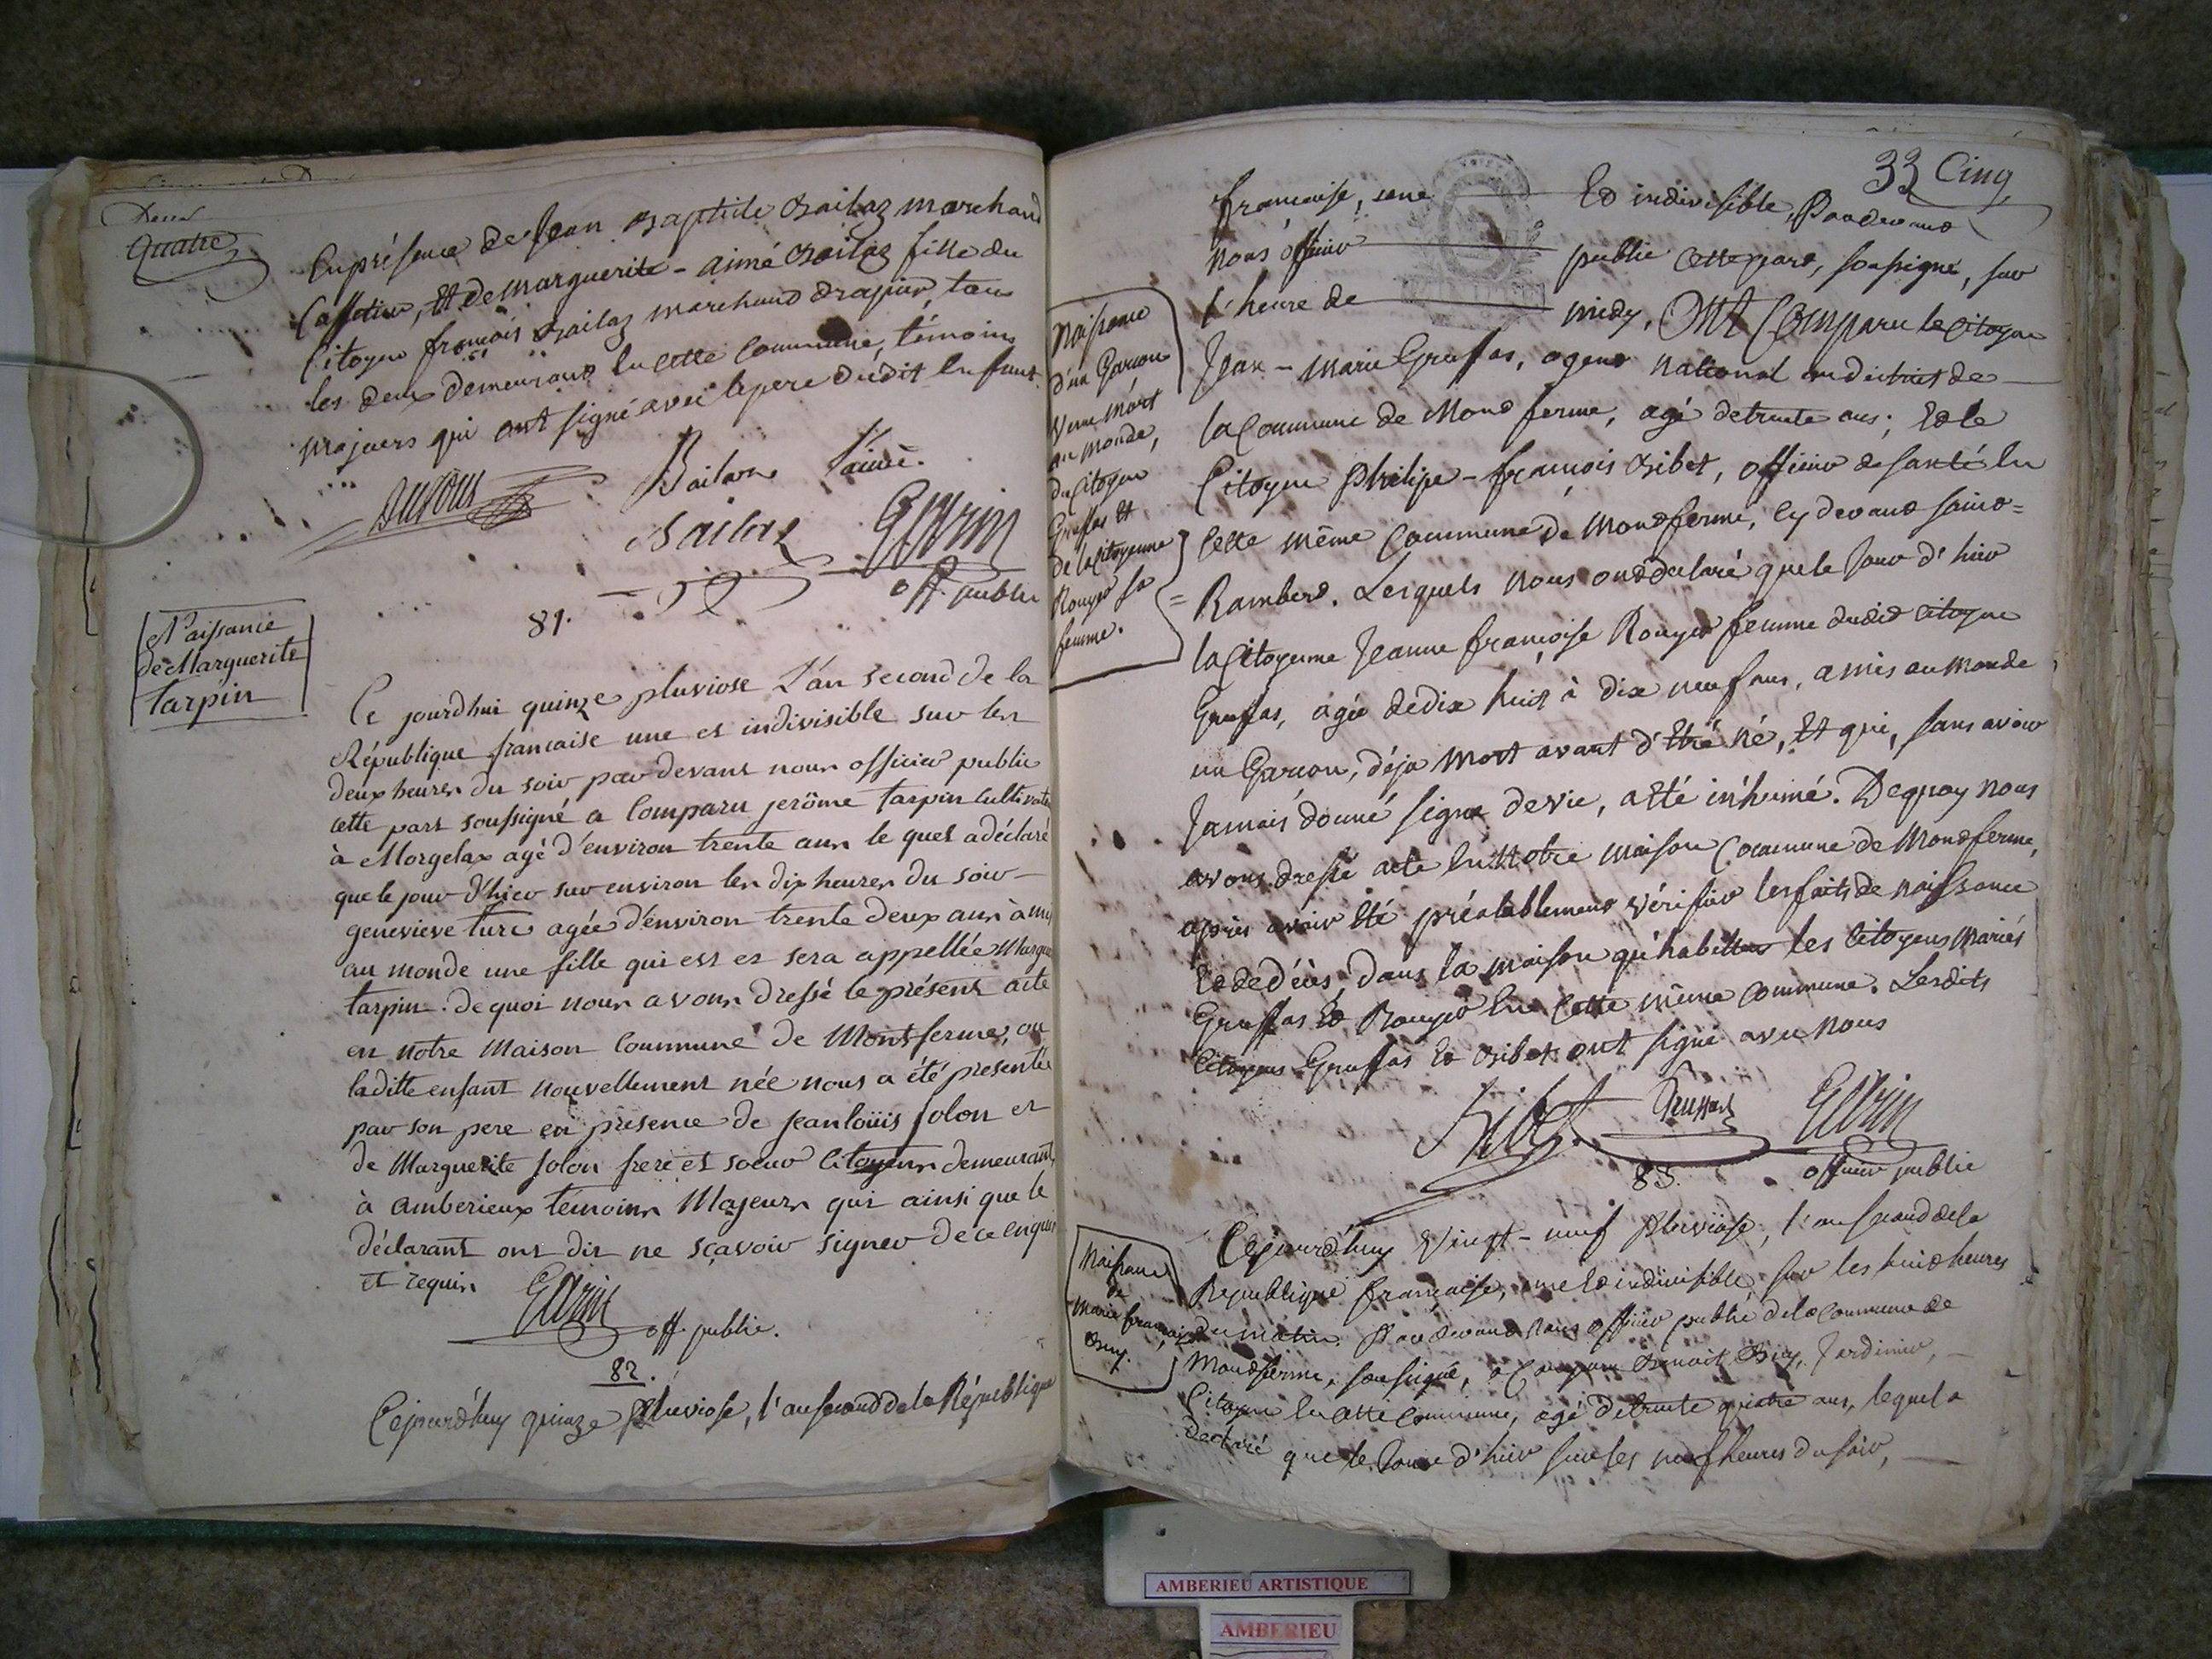 quatre
En présence de Jean Baptiste Bailaz marchand
Caffetier, Et de Marguerite - aimé Bailaz fille du
Citoyen françois Bailaz marchand drapier, tous
les deux demeurant en cette commune, témoins
majeurs qui ont signé avec le pere dudit Enfant
l'ainé.
Bailaz
Gerin
off. public
81.
Naissance
de Marguerite
tarpin
Ce jourdhui quinze pluviose L'an second de la
République francaise une et indivisible sur les
deux heures du soir par devant nous officier public
cette part soussigné a comparu jerôme tarpin cultivate
à Morgelax agé d'environ trente ans le quel a déclaré
que le jour d'hier sur environ les dix heures du soir
genevieve turc agée d'environ trente deux ans à mis
au monde une fille qui est et sera appellée Margue
tarpin. de quoi nous avons dressé le présent acte
en notre Maison Commune de Montferme, ou
laditte enfant nouvellement née nous a été presentée
par son pere en présence de jean louis jolon et
de Marguerite jolon frere et soeur Citoyens demeurant
à amberieux témoins Majeurs qui ainsi que le
déclarant ont dit ne sçavoir signer de ce enquis
et requis
Gerin
off. public.
82.
Cejourd'huy quinze Pluviose, l'an second de la République
33 Cinq
francaise, une Et indivisible, Pardevant
nous officier public cette part, soussigné, sur
l'heure de midy, Ont Comparu le Citoyen
Naissance
d'un Garcon
venu mort
au monde,
du Citoyen
Gruffas Et
de la Citoyenne
Rouyer sa
femme.
Jean - Marie Gruffas, agent national du district de
la Commune de Montferme, agé de trente ans; Et le
Citoyen Philipe - françois Bibet, officier de santé En
cette même Commune de Montferme, cy devant saint=
=Rambert. Lesquels nous ont déclaré que le Jour d'hier
la Citoyenne Jeanne françoise Rouyer femme dudit Citoyen
Gruffas, agée de dix huit à dix neuf ans, a mis au monde
un Garcon, déja mort avant d'Etre né, Et qui, sans avoir
Jamais donné signe de vie, a été inhumé. De quoy nous
avons dressé acte En Notre Maison Commune de Montferme,
après avoir Eté préalablement vérifier les faits de naissance
Et de décès, dans la maison qu'habittent les Citoyens Mariés
Gruffas Et Rouyer En cette même Commune. Lesdits
Citoyens Gruffas Et Bibet ont signé avec nous
Bibet
Gerin
officier public
83.
Naissance
de
Marie françoise
Cejourd'huy vingt - neuf Pluviose, l'an second de la
Republique française, une Et indivisible, sur les huit heures
du matin. Pardevant nous officier public de la Commune de
Montferme, soussigné, a Comparu Benoit, Jardinier,
Citoyen En cette Commune, agé de trente quatre ans, lequel a
declaré que le Jour d'hier sur les neuf heures du soir,
AMBERIEU ARTISTIQUE
AMBERIEU